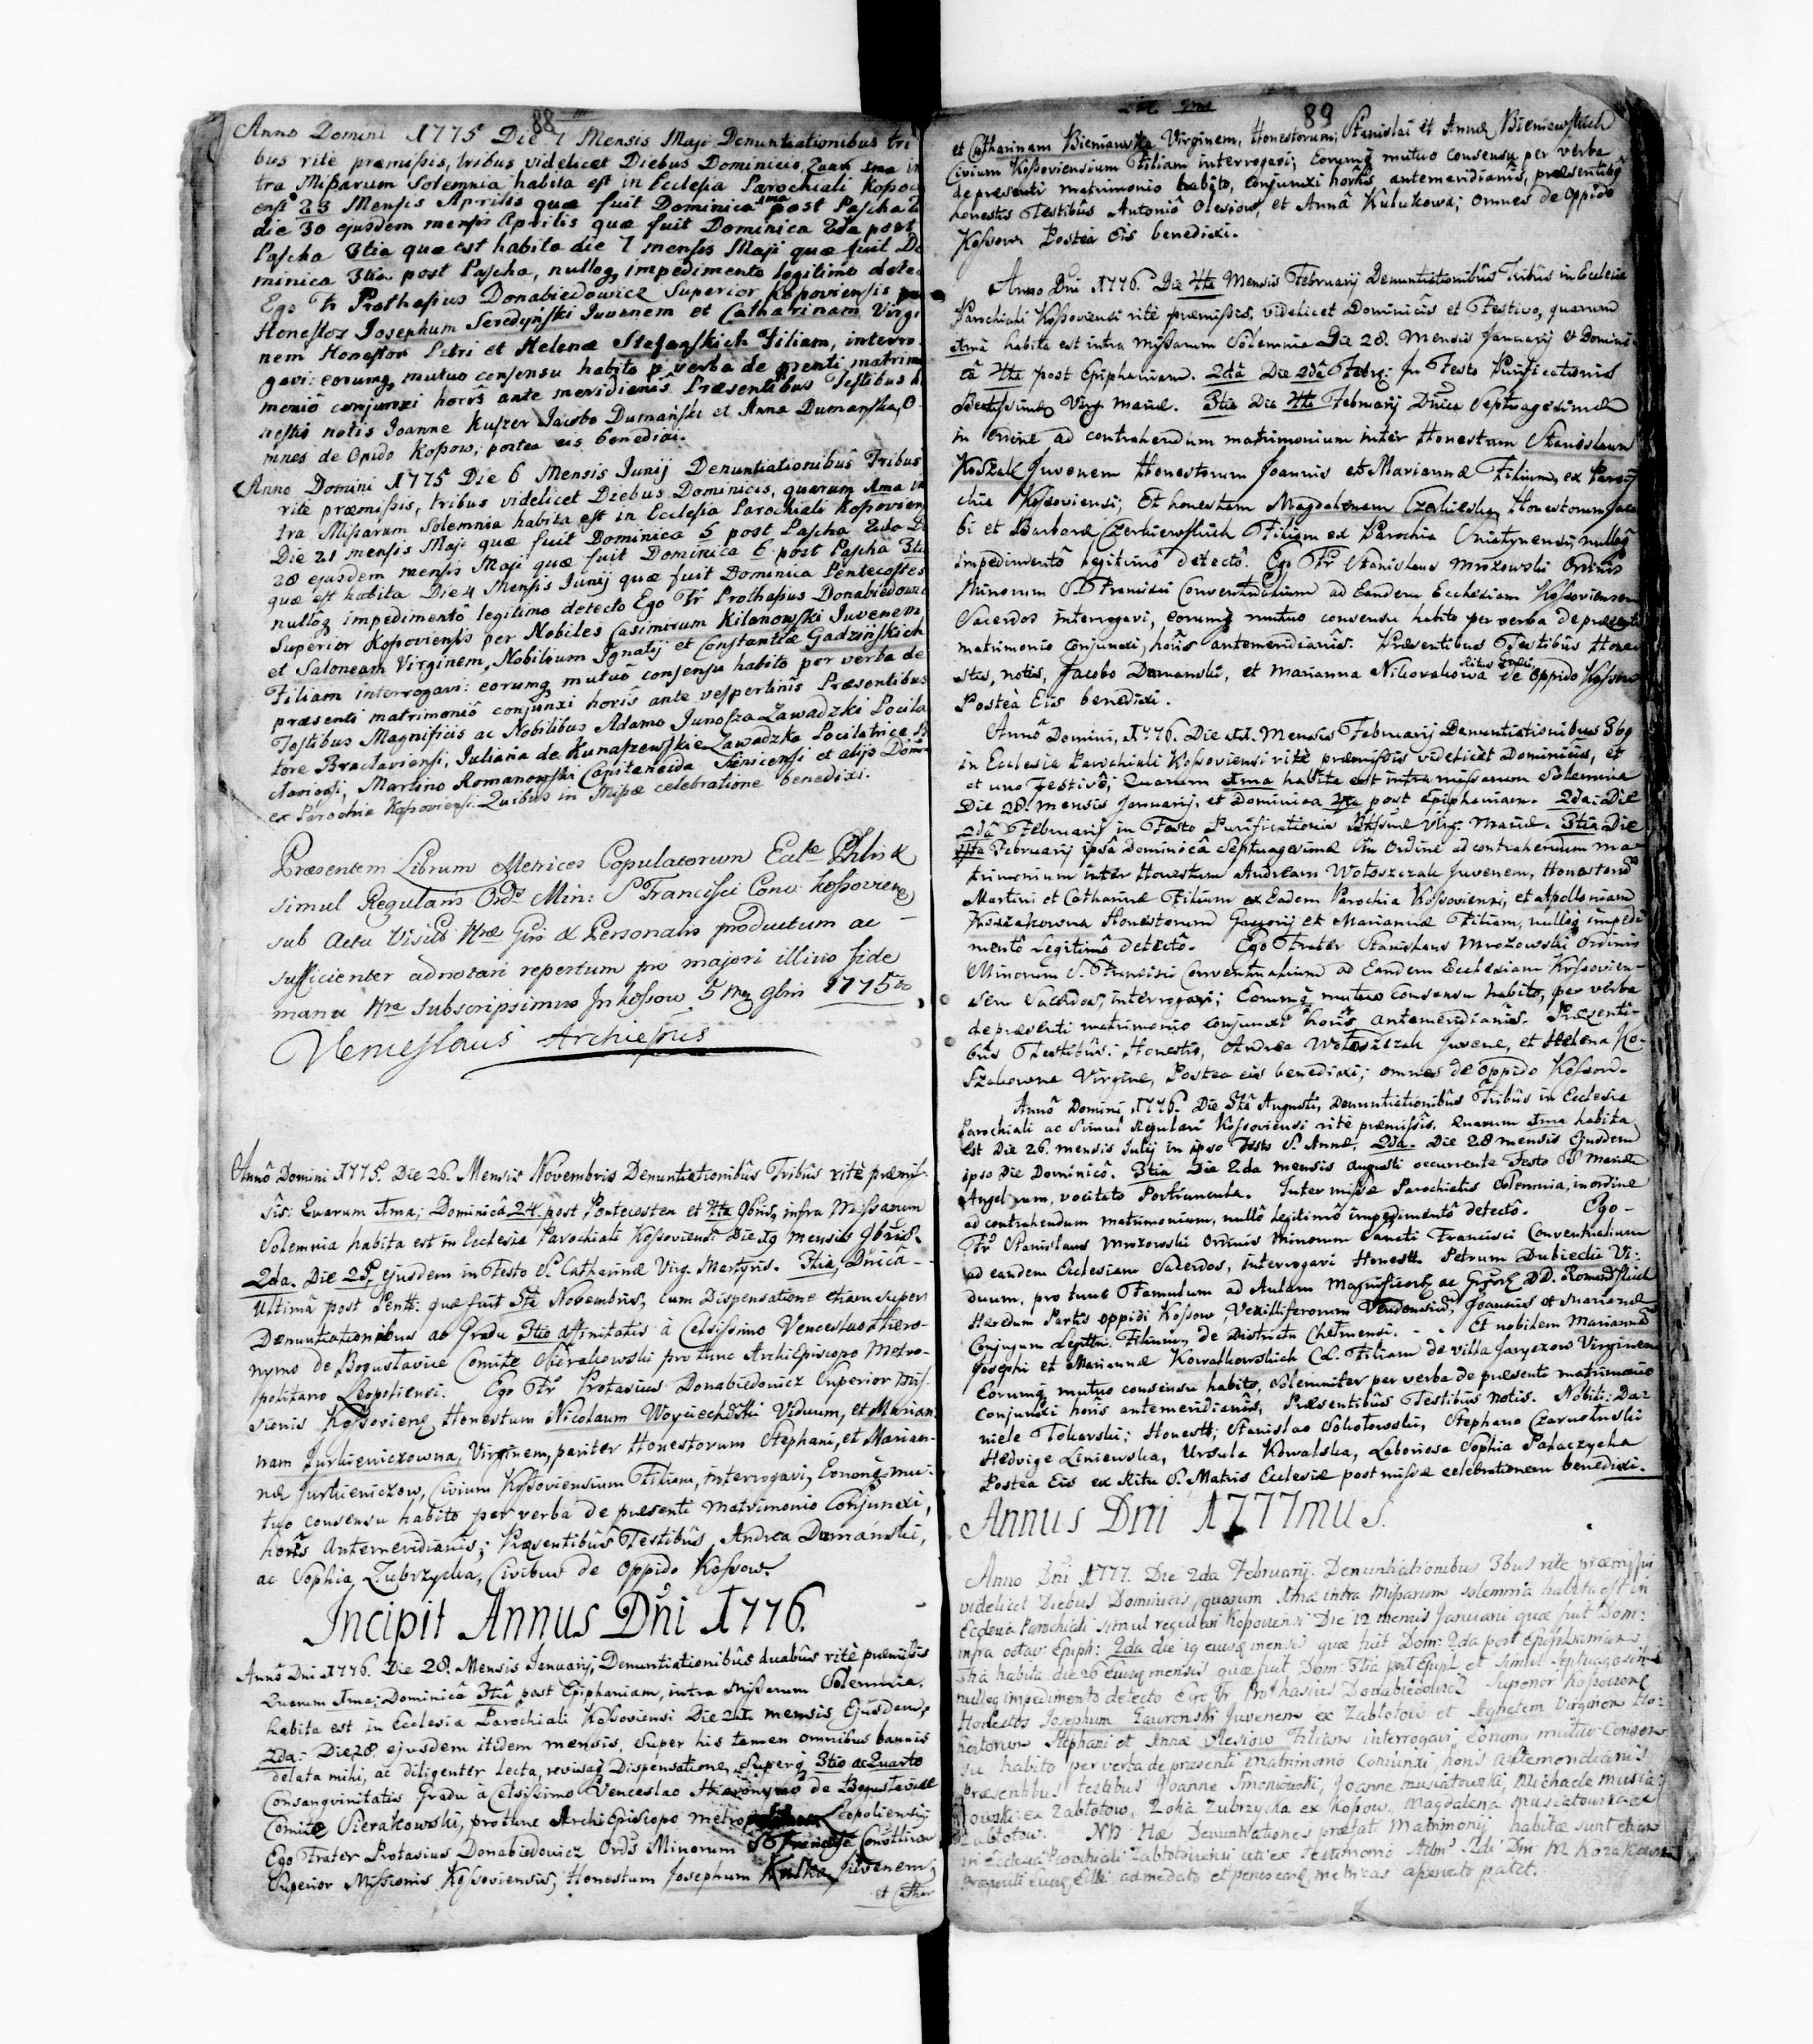 88
Anno Domini 1775 Die 7 Mensis Maji Denuntiationibus tri
bus ritè præmissis, tribus videlicet Diebus Dominicis, Quar 1ma in
tra Missarum Solemnia habita est in Ecclesia Parochiali Kossov
ensi 23 Mensis Aprilis quæ fuit Dominica 1ma post Pascha 2
die 30 ejusdem mensis Aprilis quæ fuit Dominica 2da post
Pascha 3tia quæ est habita die 7 mensis Maji quæ fuit Do
minica 3tia post Pascha, nulloq impedimento legitimo detec
Ego Fr Prothasius Donabiedowicz Superior Kossoviensis
Honestos Josephum Seredyński Juvenem et Catharinam Virgi
nem Honestor Petri et Helenæ Stefańskich Filiam, interro
gavi: eorumq mutuo consensu habito p verba de præsenti matrim
moniô conjunxi horis ante meridianis Præsentibus Testibus h
nestis notis Joanne Kuszer Jacobo Dumański et Anna Dumańska, O
mnes de Opido Kossow; postea eis benedixi.
Anno Domini 1775 Die 6 Mensis Junij Denuntiationibûs Tribus
rite præmissis, tribus videlicet Diebus Dominicis, quarum 1ma in
tra Missarum Solemnia habita est in Ecclesia Parochiali Kossovien
Die 21 mensis Maji quæ fuit Dominica 5 post Pascha 2da D
28 ejusdem mensis Maji quæ fuit Dominica 6 post Pascha 3ti
quæ est habita Die 4 Mensis Junij quæ fuit Dominica Pentecostes
nullôq impedimentô legitimo detecto Ego Fr Prothasius Donabiedowi
Superior Kossoviensis per Nobiles Casimirum Kilanowski Juvenem
et Saloneam Virginem, Nobilium Ignatij et Constantiæ Gadzińskich
Filiam interrogavi: eorumq mutuô consensu habito per verba de
præsenti matrimoniô conjunxi horis ante vespertinis Præsentibus
Testibus Magnificis ac Nobilibus Adamo Junosza Zawadzki Pocila
tore Braclaviensi, Juliana de Kunaszewskie Zawadzka Pocilatrice B
claviensi, Martino Romanowski Capitaneida et alijs Dom
ex Parochia Kossoviensi. Quibus in Missæ celebratione benedixi.
Præsentem Librum Metrices Copulatorum
simul Regularis Ordis Min: S Francisci Conv: Kossovien
sub Actu Visitis Nræ Gnlis & Personalis productum ac
sufficienter adnotari repertum pro majori illius fide
manu Nra subscripsimus In Kossow 5 9bris 1775to
Venceslaus Archieppus
Annô Domini 1775. Die 26. Mensis Novembris Denuntiationibûs Tribûs ritè præmis-
sis: Quarum 1ma; Dominicâ 24 post Pentecosten et 4ta 9bris, infra Missarum
Solemnia habita est in Ecclesia Parochiali Kossoviensi Die 19 mensis 9bris.
2da. Die 25, ejusdem in Festo S. Catharinæ Virg. Martyris. 3tia, Dnicâ-
Ultimâ post Pentt: quæ fuit Novembris, cum Dispensatione etiam super
Denuntiationibus ac Gradu 3tio affinitatis à Celsissimo Venceslao Hiero-
nymo de Bogusławice Comite Sierakowski pro tunc Archi Episcopo Metro-
politano Leopoliensi. Ego Fr Protasius Donabiedowicz Superior Mis-
sionis Kossoviens Honestum Nicolaum Woyciechoski Viduum, et Marian-
nam Jurkieniczowna, Virginem, pariter Honestorum Stephani, et Marian-
næ Jurkieniczow, Civium Kossoviensium Filiam, interrogavi, Eorumq mu-
tuo consensu habito per verba de præsenti Matrimonio Conjunxi,
horîs Antemeridianis; Præsentibûs Testibûs, Andrea Dumański,
ac Sophia Zubrzycka, Civibus de Oppido Kossow.
Incipit Annus Dni 1776.
Annô Dni 1776. Die 28. Mensis Januarij, Denuntiationibûs duabûs ritè præmissis
Quarum 1ma; Dominicâ 3tiâ post Epiphaniam, intra Missarum Solemnia,
habita est in Ecclesia Parochiali Kossoviensi Die 21 mensis Ejusdem;
2da: Die 28. ejusdem itidem mensis. Super his tamen omnibus bannis
delata mihi, ac diligenter lecta, revisaq Dispensatione, Superq 3tio ac Quarto
Consanguinitatis Gradu à Celsissimo Venceslao Hieronymô de Bogusławice
Comite Sierakowski, pro tunc Archi Episcopo Metro Leopoliensi;
Ego Frater Protasius Donabiedowicz Ordis Minorum S Francisci
Superior Missionis Kossoviensis; Honestum Josephum Juvenem;
et Cathar
89
et Catharinam Bieniawska Virginem, Honestorum; Stanislai et Annæ Bieniewskich
Civium Kossoviensium Filiam interrogavi; Eorumq mutuo consensu per verba
de præsenti matrimonio habito, Conjunxi horîs antemeridianis, præsentibq
honestis Testibûs Antoniô Olesiow, et Annâ Kulukowa; omnes de Oppido
Kossow Postea Eis benedixi.
Anno Dni 1776. Die 4ta Mensis Februarij Denuntiationibûs Tribûs in Ecclesia
Parochiali Kossoviensi ritè præmissis, videlicet Dominicis et Festivo, quarum
1mâ habita est intra Missarum Solemnia Die 28. Mensis Januarij et Domini-
câ 4ta post Epiphaniam. 2dâ Die 2dâ Febrij In Festo Purificationis
Beatissimæ Virg Mariæ. 3tia Die 4ta Februarij Dnica Septuagesimæ
in Ordine ad contrahendum matrimonium inter Honestum Stanislaum
Koszak Juvenem Honestorum Joannis et Mariannæ Filium, ex Paro
chia Kossoviensi; Et honestam Magdalenam Czerkieską Honestorum Jaco
bi et Barbaræ Czerkiewskich Filiam ex Parochia Sniatynensi, nullôq
impedimentô legitimô detectô. Ego Fr Stanislaus Mrozowski Ordinis
Minorum S Francisci Conventualium ad Eandem Ecclesiam Kossoviensem
Sacerdos interrogavi, eorumq mutuo consensu habito per verba de præsenti
matrimonio Conjunxi, horis antemeridianis. Præsentibus Testibûs Hone
stis, notis, Jacobo Dumanski, et Marianna Nikorakowa Ritus Græci, de Oppido Kossow
Postea Eis benedixi.
Annô Domini, 1776. Die 11. Mensis Februarij Denuntiationibus 3bq
in Ecclesia Parochiali Kossoviensi ritè præmissis videlicet Dominicis, et
et uno Festivô; Quarum 1ma habita est intra missarum Solemnia
Die 28. Mensis Januarij, et Dominica 4ta post Epiphaniam. 2da: Die
2dâ Februarij in Festo Purificationis Btssmæ Virg: Mariæ. 3tia Die
4ta Februarij ipsâ Dominicâ Septuagesimæ in Ordine ad contrahendum ma-
trimonium inter Honestum Andream Wołoszczak Juvenem, Honestorum
Martini et Catharinæ Filium ex Eadem Parochia Kossoviensi, et Apolloniam
Koszakowna Honestorum Gregorij et Mariannæ Filiam, nullôq impedi
mentô Legitimô detectô. Ego Frater Stanislaus Mrozowski Ordinis
Minorum S. Francisci Conventualium ad Eandem Ecclesiam Kossovien-
sem Sacerdos, interrogavi; Eorumq mutuo Consensu habito, per verba
de præsenti matrimonio Conjunxi horis antemeridianis. Præsenti-
bûs Testibûs: Honestis, Andrea Wołoszczak Juvene, et Helena Ko-
szakowna Virgine, Postea eis benedixi; omnes de Oppido Kossow.
Annô Domini 1776. Die Augusti, Denuntiationibûs Tribûs in Ecclesia
Parochiali ac Simul Regulari Kossoviensi ritè præmissis. Quarum 1ma habita
est Die 26. mensis Julij in ipso Festo S. Annæ, 2da. Die 28 mensis Ejusdem
ipso Die Dominicô. 3tia Die 2da mensis Augusti occurrente Festo S Mariæ
Angelorum, vocitato Portiuncula. Inter missæ Parochialis Solemnia, in ordine
ad contrahendum matrimonium, nullô legitimô impedimentô detectô. Ego-
Fr Stanislaus Mrozowski Ordinis Minorum Sancti Francisci Conventualium
ad eandem Ecclesiam Sacerdos, interrogavi Honest. Petrum Dubiecki Vi-
duum, pro tunc Famulum ad Aulam Magnificorq ac DD. Romanowskich
Hæredum Partis oppidi Kossow, Vexilliferorum Joannis et Mariannæ
Conjugum Legttm: Filium, de Districtu Chełmensi. - - Et nobilem Mariannam
Josephi et Mariannæ Kowalkowskich C.L. Filiam de villa Jaryczow Virginem
Eorumq mutuo consensu habito, solemniter per verba de præsenti matrimonio
Conjunxi horis antemeridianis, Præsentibûs Testibûs notis. Nobili: Da-
niele Tokarski; Honestt; Stanislao Sokołowski, Stephano Czarnołuski
Hedvige Leniewska, Ursula Kowalska, Laboriosa Sophia Pałaczycha
Postea Eis ex Ritu S. Matris Ecclesiæ post missæ celebrationem benedixi.
Annus Dni 1777mus.
Anno Dni 1777. Die 2da Februarij. Denuntiationibus 3bus rite præmissis
videlicet Diebus Dominicis, quarum 1ma intra Missarum solemnia habita est in
Ecclesia Parochiali simul regulari Kossoviensi Die 12 mensis Januarii quæ fuit Dom:
infra octav: Epiph: 2da die 19 eiusq mensis quæ fuit Dom: 2da post Epiphaniam
3tia habita die 26 eiusq mensis quæ fuit Dom: 3tia post Epiph et simul Septuagesima
nulloq impedimento detecto Ego Fr Prothasius Donabiedowicz Superior Kossoviens
Honestos Josephum Gawronski Juvenem ex Zabłotow et Agnetem Virginem Ho-
nestorum Stephani et Annæ Olesiow Filiam interrogavi, Eorumq mutuo Consen-
su habito per verba de præsenti matrimonio Coniunxi, horis Antemeridianis
præsentibus testibus Joanne Simonowski, Joanne Musiatowski, Michaele Musia-
towski: ex Zabłotow, Zofia Zubrzycka ex Kossow, Magdalena Musiatowska ex
Zabłotow. NB Hæ Denuntiationes præfat Matrimonij habitæ sunt etiam
in Ecclesia Parochiali Zabłotoviensi uti ex Testimonio Adm Rdi Dni M Kozakiewicz
præpositi eiusq Ecclæ admedato et penes easq metricas asservato patet.